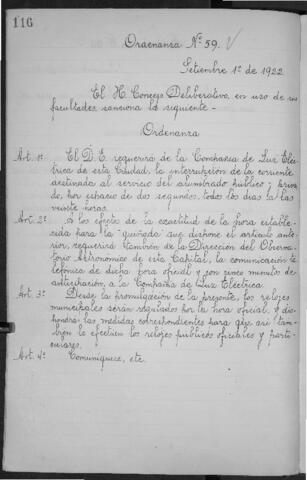 116
Ordenanza Nº 59.
Setiembre 1º de 1922
El H. Concejo Deliberativo, en uso de sus
facultades sanciona la siguiente -
Ordenanza
Art. 1º El D. E. requerirá de la Compañia de Luz Eléc-
trica de esta Ciudad, la interrupción de la corriente
destinada al servicio del alumbrado público y priva-
do, por espacio de dos segundos, todos los dias a las
veinte horas.
Art. 2º A los efectos de la exactitud de la hora estable-
cida para la que dispone el articulo ante-
rior, requerirá tambien de la Dirección del Observa-
torio Astronómico de esta Capital, la comunicación te-
lefónica de dicha hora oficial y con cinco minutos de
anticipación, a la Compañia de Luz Eléctrica.
Art. 3º Desde la promulgación de la presente, los relojes
municipales serán regulados por la hora oficial, y dis-
pondrá las medidas correspondientes para que asi tam-
bién lo efectúen los relojes públicos oficiales y parti-
culares.
Art. 4º Comuniquese, etc.